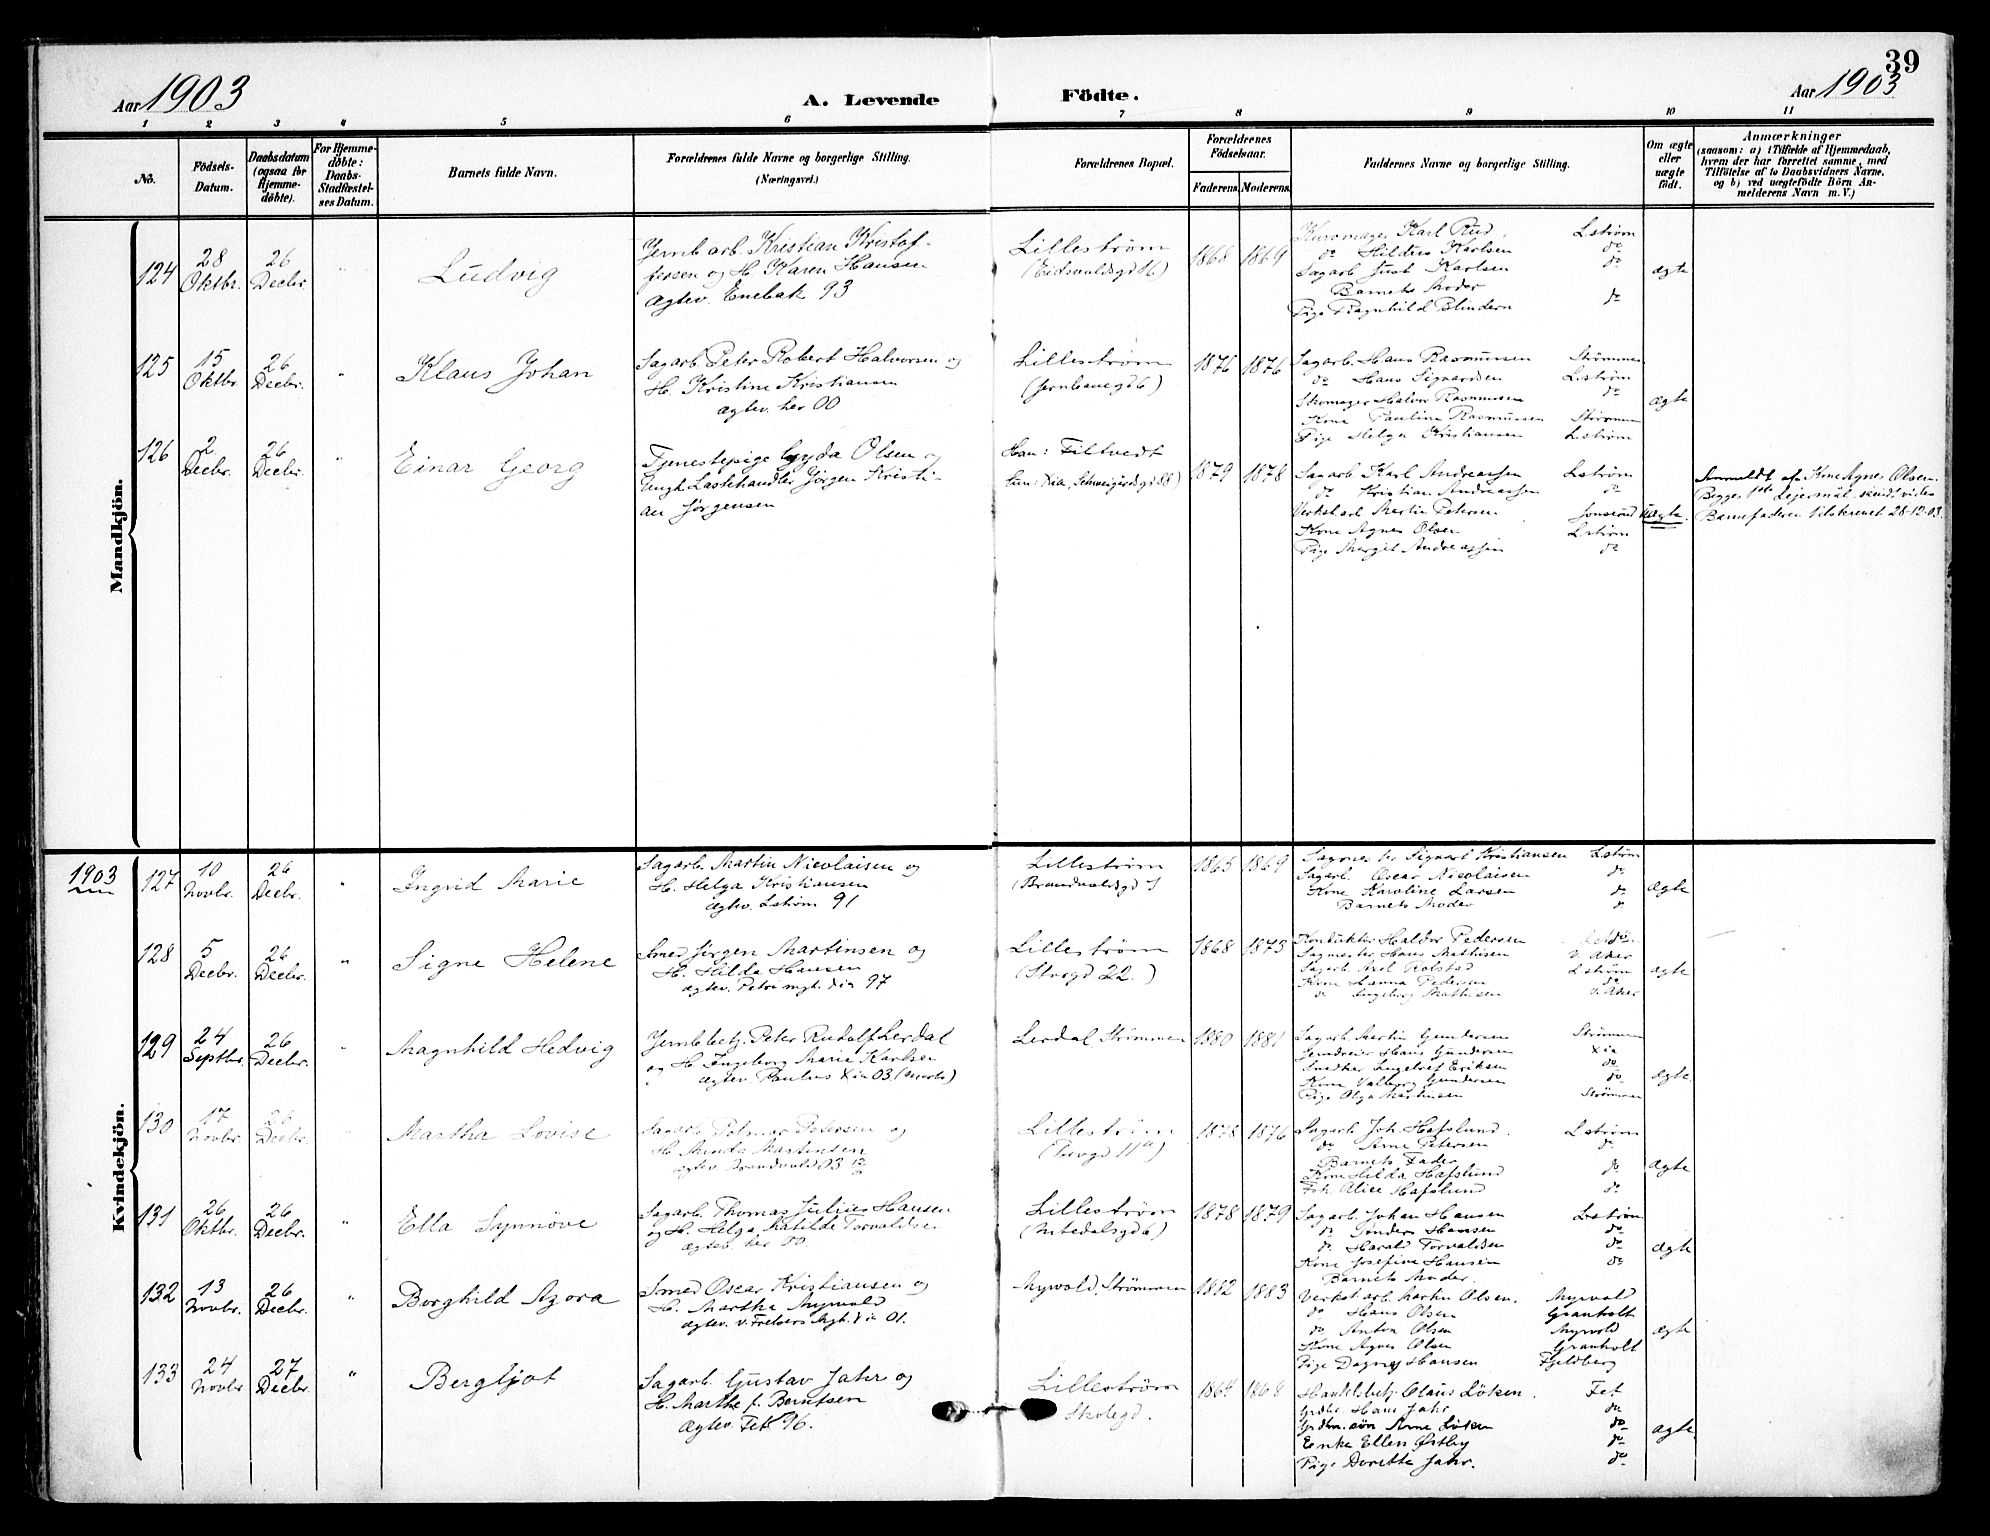 39
Aar 1903
A. Levende Födte.
Aar 1903
1 2 3 4 5 6 7 8 9 10 11
No.
Födsels-
Datum.
Daabsdatum
(ogsaa for
Hjemme-
döbte).
For Hjemme-
döbte:
Daabs-
Stadfæstel-
ses Datum.
Barnets fulde Navn.
Forældrenes fulde Navne og borgerlige Stilling.
(Næringsvei.)
Forældrenes Bopæl.
Forældrenes
Födselsaar.
Faderens.
Moderens.
Faddernes Navne og borgerlige Stilling.
Om ægte
eller
uægte
födt.
Anmærkninger
(saasom: a) i Tilfælde af Hjemmedaab,
hvem der har forrettet samme, med
Tilföielse af to Daabsvidners Navne,
og b) ved uægtefödte Börn An-
melderens Navn m. V.)
Mandkjön.
124
28
Oktbr.
26
Decbr.
"
Ludvig
Jernb arb. Kristian Kristof-
fersen og H. Karen Hansen
Ægtev. Enebak 93
Lillestrøm
(Eidsvoldsgd 16)
1868 1869
Karl Rud. L.strøm
do Karlsen do
Sagarb. Just Karlsen do
Barnets Moder
Pige Ragnhild Blindern do
ægte
125
15
Oktbr.
26
Decbr.
"
Klaus Johan
Sagarb. Peter Robert Halvorsen og
H. Kristine Kristiansen
Ægtev. her 00
Lillestrøm
(Jernbanegd 6)
1876 1876
Sagarb. Hans Rasmussen Strømmen
do Hans Sigvardsen L.strøm
Skomager Halvor Rasmussen do
Kone Pauline Rasmussen Strømmen
Pige Helga Kristiansen L.strøm
Ægte
126
2
Decbr.
26
Decbr.
"
Einar Georg
Tjenestepige Gyda Olsen og
Ungk. Lastehandler Jørgen Kristi-
an Jørgensen
Han: Filtvedt
Hun: Xia, Schweigårdsgd 88)
1879 1878
Sagarb. Karl Andreassen L.strøm
do Kristian Andreassen do
Verkst arb Martin Petersen
Kone Agnes Olsen L.strøm
Pige Margit Andreassen do
Uægte.
Anmeldt af Kone Agnes Olsen.
Begges 1ste Leiermål
Barnefaderen tilskrevet 28-12-03.
1903
Kvindekjön.
127
10
Novbr.
26
Decbr.
"
Ingrid Marie
Sagarb. Martin Nicolaisen og
H. Helga Kristiansen
Ægtev. L.strøm 91
Lillestrøm
(Brandvoldsgd 7
1865 1869
Sagmester Sigvart Kristiansen L.strøm
Sagarb. Oscar Nicolaisen do
Kone Karoline Larsen do
Barnets Moder
Ægte
128
5
Decbr.
26
Decbr.
"
Signe Helene
Smed Jørgen Martinsen og
H. Hilda Hansen
Ægtev. Petri mgh. Xia 97
Lillestrøm
(Storgd 22.)
1868 1875
Konduktør Haldor Pedersen
Sagmester Hans Mathisen V. Aker
Sagarb. Axel Rolstad L.strøm
Kone Hanna Pedersen do
do Ingeborg Mathisen V. Aker
ægte
129
24
Septbr.
26
Decbr.
"
Magnhild Hedvig
Jernb betj. Peter Rudolf Lerdal
og H. Ingeborg Marie Karlsen
Ægtev. Paulus Xia 03 (Marts)
Lerdal Strømmen
1880 1881
Sagarb. Martin Gundersen Strømmen
Jerndreier Hans Gundersen Xia
Snedker Ingelret Eriksen do
Kone Valborg Gundersen do
Pige Olga Mathisen Strømmen
ægte
130
17
Novbr.
26
Decbr.
"
Martha Lovise
Sagarb. Petersen og
H. Minda Martinsen
Ægtev. 03
Lillestrøm
(Torvgd 11a)
1878 1876
Sagarb. Joh. Hafslund. L.strøm
do Arne Petersen do
Barnets Fader
Kone Hilda Hafslund do
Frk. Alice Hafslund do
ægte
131
26
Oktbr.
26
Decbr.
"
Ella Synnöve
Sagarb. Thomas Julius Hansen
og H. Helga Matilde Torvaldsen
Ægtev. her 00.
Lillestrøm
(Nitedalsgd 6)
1878 1879
Sagarb. Johan Hansen L.strøm
do Anders Hansen do
do Harald Torvaldsen do
Kone Josefine Hansen do
Barnets Moder.
Ægte
132
13
Novbr.
26
Decbr.
"
Borghild Azora
Smed Oscar Kristiansen og
H. Martha Myrvold
Ægtev. V. Frelsers Mgh. Xia 01.
Myrvold, Strømmen
1882 1883
Verkst arb. Martin Olsen. Myrvold
do Hans Olsen Granholt
do Anton Olsen Myrvold
Kone Agnes Olsen Granholt
Pige Dagny Hansen Fjeldberg
ægte
133
24
Novbr.
27
Decbr.
"
Bergljot
Sagarb. Gustav Jahr og
H. Marthe f. Berntsen
Ægtev. Fet 96.
Lillestrøm
Skolegd.
1864 1868
Handelsbetj. Olaus Löken. Fet
Grdbr. Hans Jahr do
Grdbr. sön Arne Löken do
Enke Ellen Østby do
Pige Dorette Jahr. do
ægte